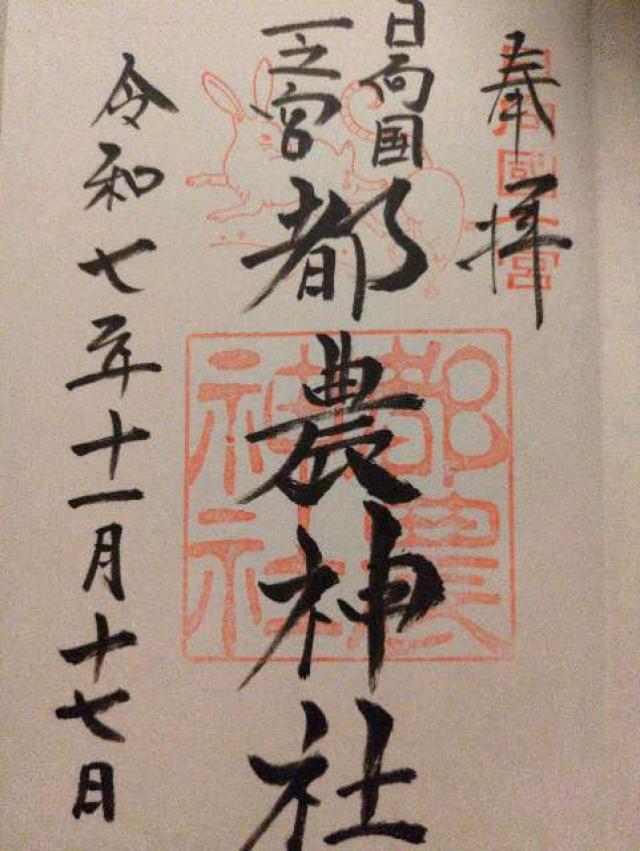 奉拝
日向國一宮
日向国
一之宮
都農神社
都農
神社
令和七年十一月十七日